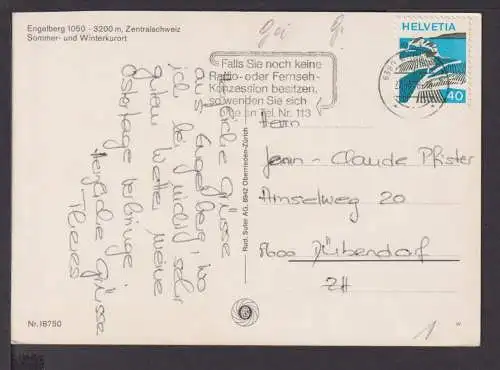 Engelberg 1050 - 3200 m, Zentralschweiz
Sommer- und Winterkurort
HELVETIA
40
Falls Sie noch keine
Radio- oder Fernseh-
Konzession besitzen,
so wenden Sie sich
an Tel. Nr. 113
Liebe Grüsse
aus Engelberg, wo
ich bei wirklich sehr
gutem Wetter meine
Ostertage verbringe
Herzliche Grüsse
Theres
Rud. Suter AG, 8942 Oberrieden-Zürich
Herrn
Jean-Claude Pfister
Amselweg 20
8600 Dübendorf
ZH
Nr. 18750
1